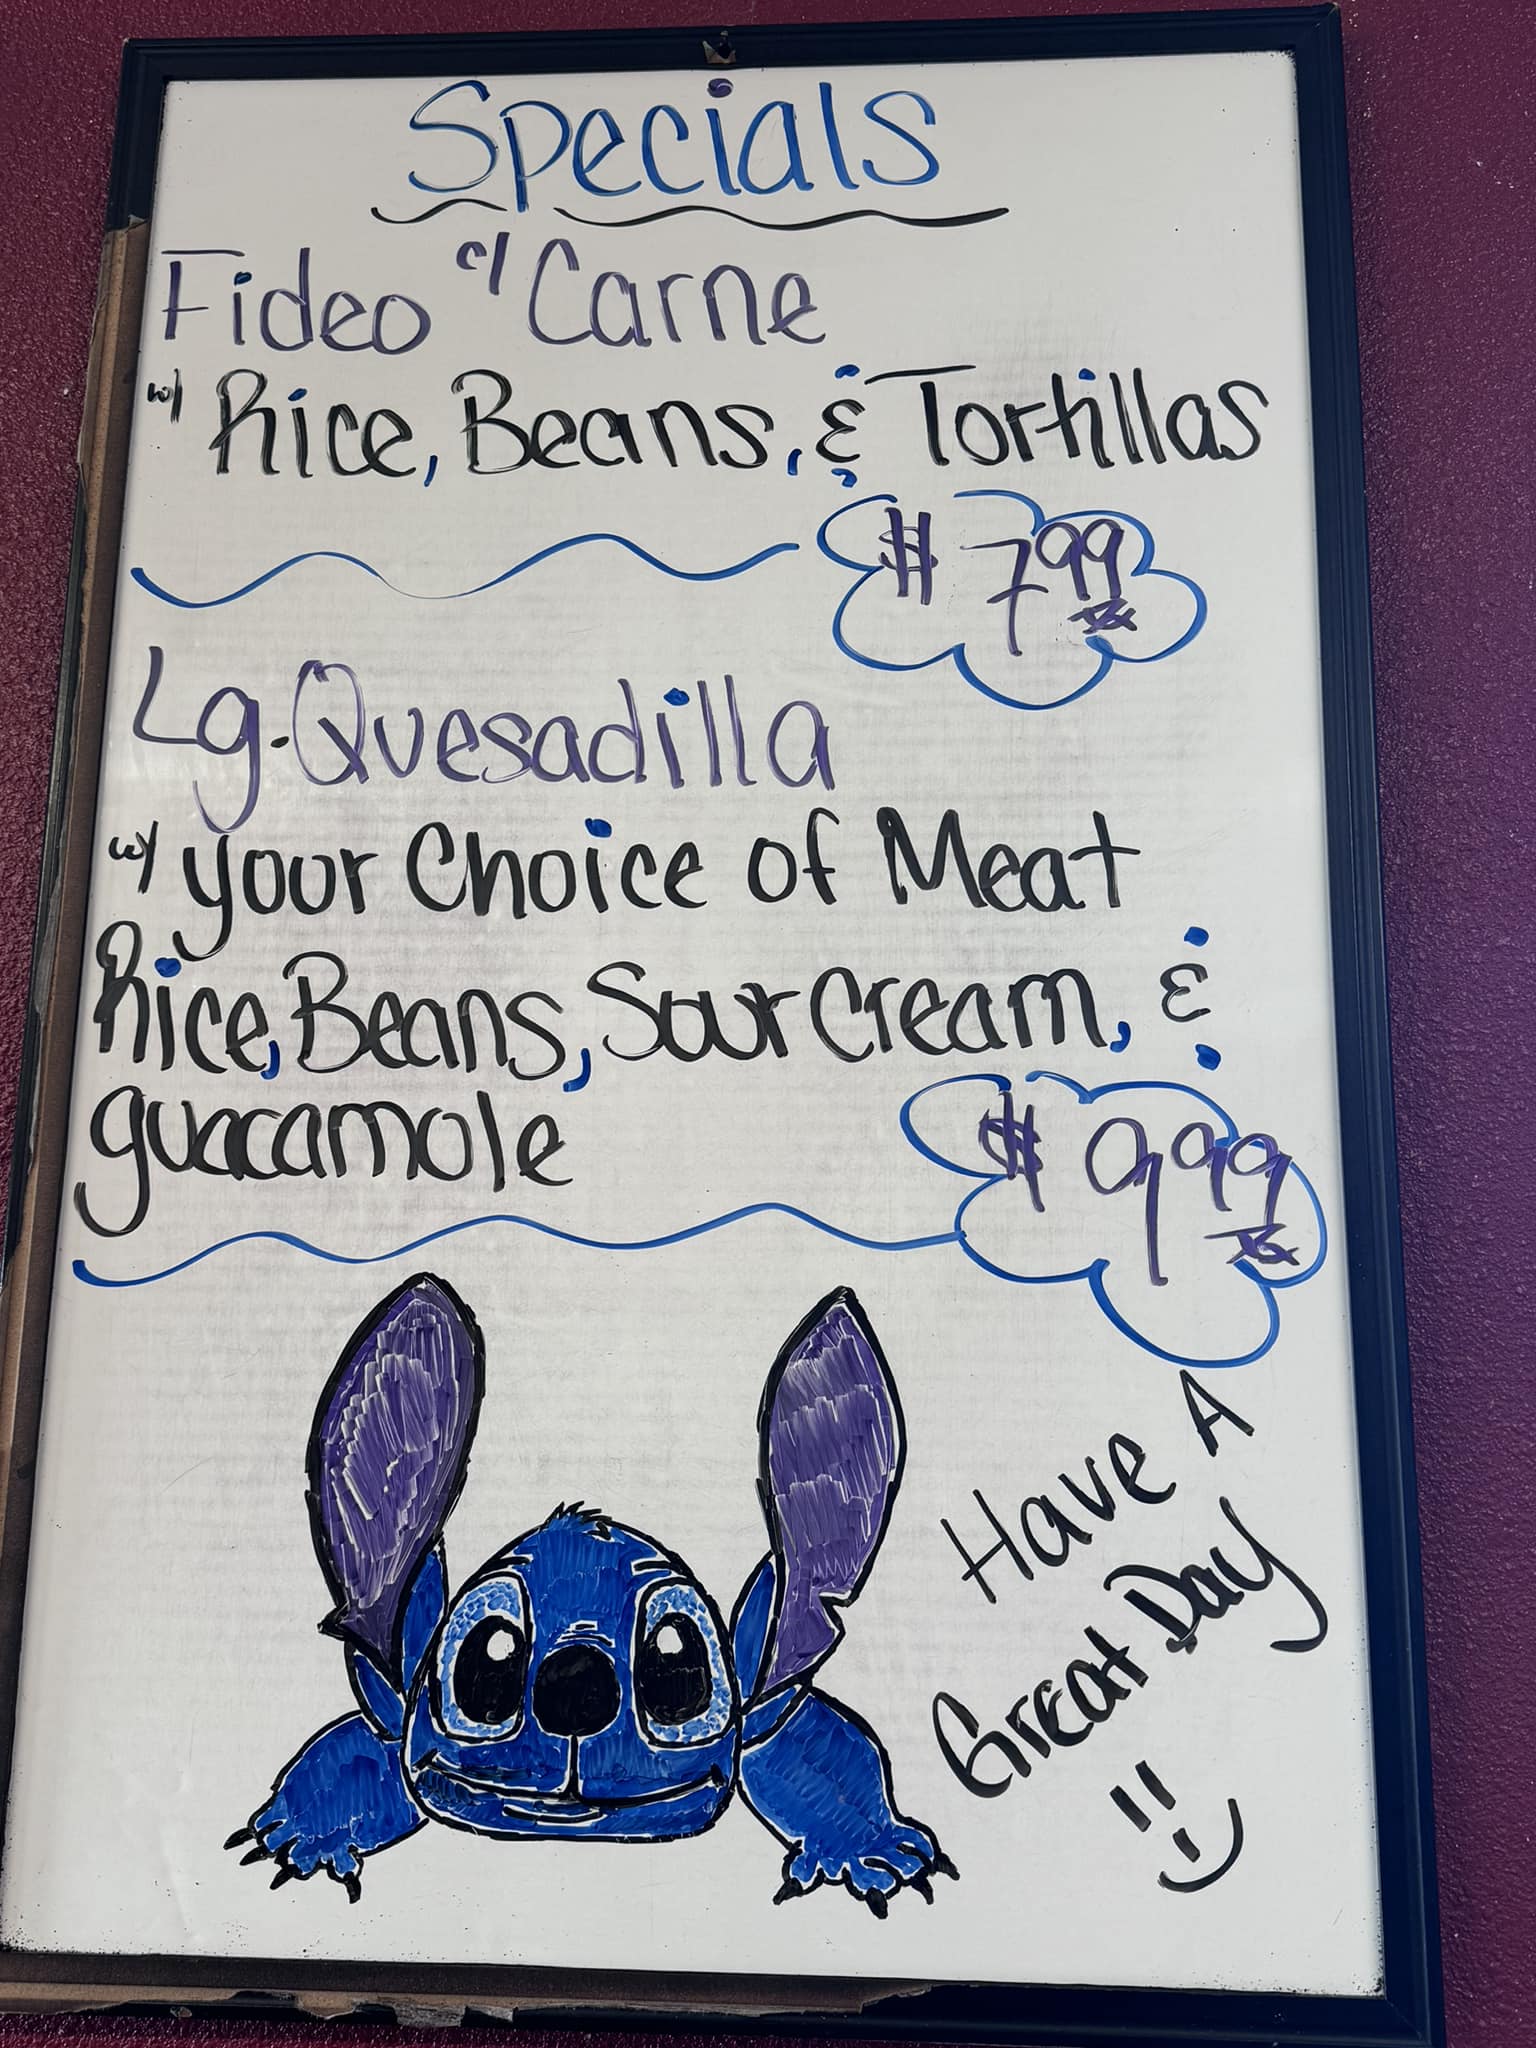 Specials
Fideo c/ Carne
w/ Rice, Beans, & Tortillas
$7.99
Lg. Quesadilla
w/ your Choice of Meat
Rice, Beans, Sour Cream, &
guacamole
$9.99
Have A
Great Day